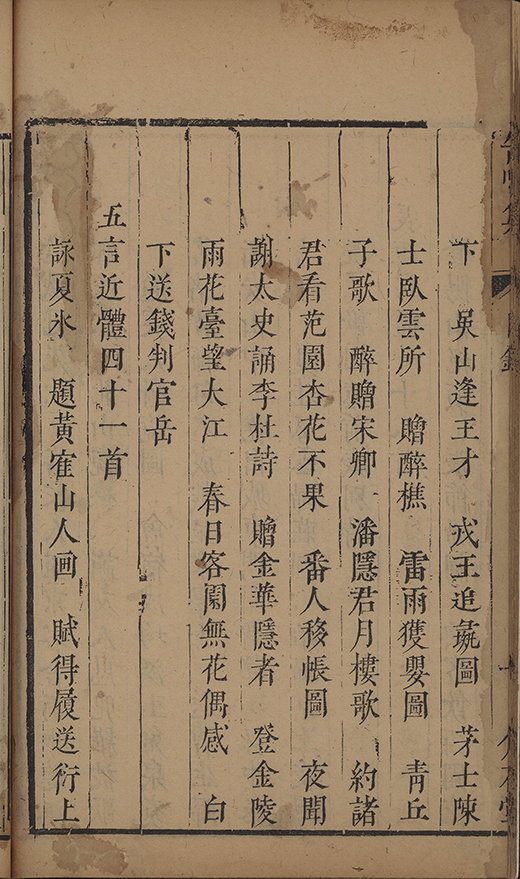 下　吳山逢王才　戎王追彘圖　茅士陳
士臥雲所　贈醉樵　雷雨獲嬰圖　青丘
子歌　醉贈宋卿　潘隱君月樓歌　約諸
君看范園杏花不果　番人移帳圖　夜聞
謝太史誦李杜詩　贈金華隱者　登金陵
雨花臺望大江　春日客園無花偶感　白
下送錢判官岳
五言近體四十一首
詠夏氷　題黃隺山人画　賦得履送衍上